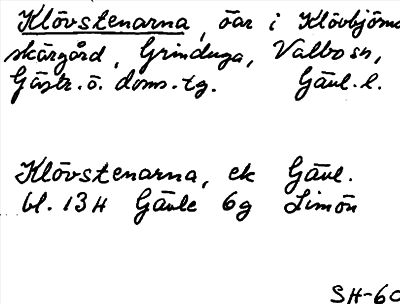 Klövstenarna, öar i Klövbjörns
skärgård, Grinduga, Valbo sn,
Gästr. ö. doms. tg. Gävl. l.
Klövstenarna, ek Gävl.
bl. 13H Gävle 6g Limön
SH-60